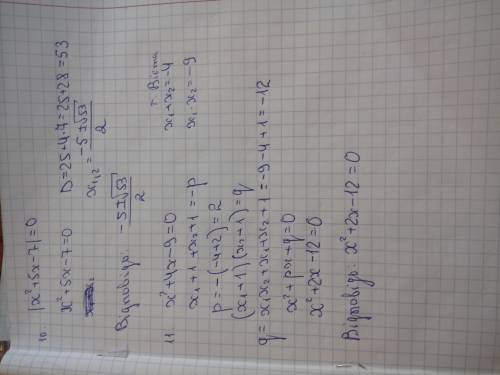 10 |x²+5x-7|=0
x²+5x-7=0 D=25+4·7=25+28=53
x₁,₂ = (-5±√53)/2
Відповідь: (-5±√53)/2
11 x²+4x-9=0 т. Вієта
x₁+1+x₂+1=-p x₁+x₂=-4
p=-(-4+2)=2 x₁·x₂=-9
(x₁+1)(x₂+1)=q
q=x₁x₂+x₁+x₂+1=-9-4+1=-12
x²+px+q=0
x²+2x-12=0
Відповідь: x²+2x-12=0